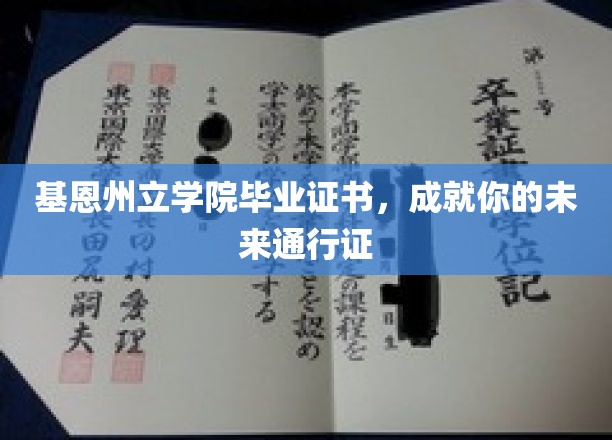 基恩州立学院毕业证书，成就你的未
来通行证
第 号
卒業証 学位記
本学商学部 定の課程を
修めて本学 ことを認め
学士(商学)の学 する
平成
日生
東京国際大学 村愛理
東京国際大 長田尻嗣夫